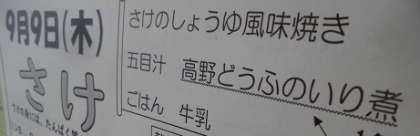 9月9日(木)
さけ
さけのしょうゆ風味焼き
五目汁 高野どうふのいり煮
ごはん 牛乳